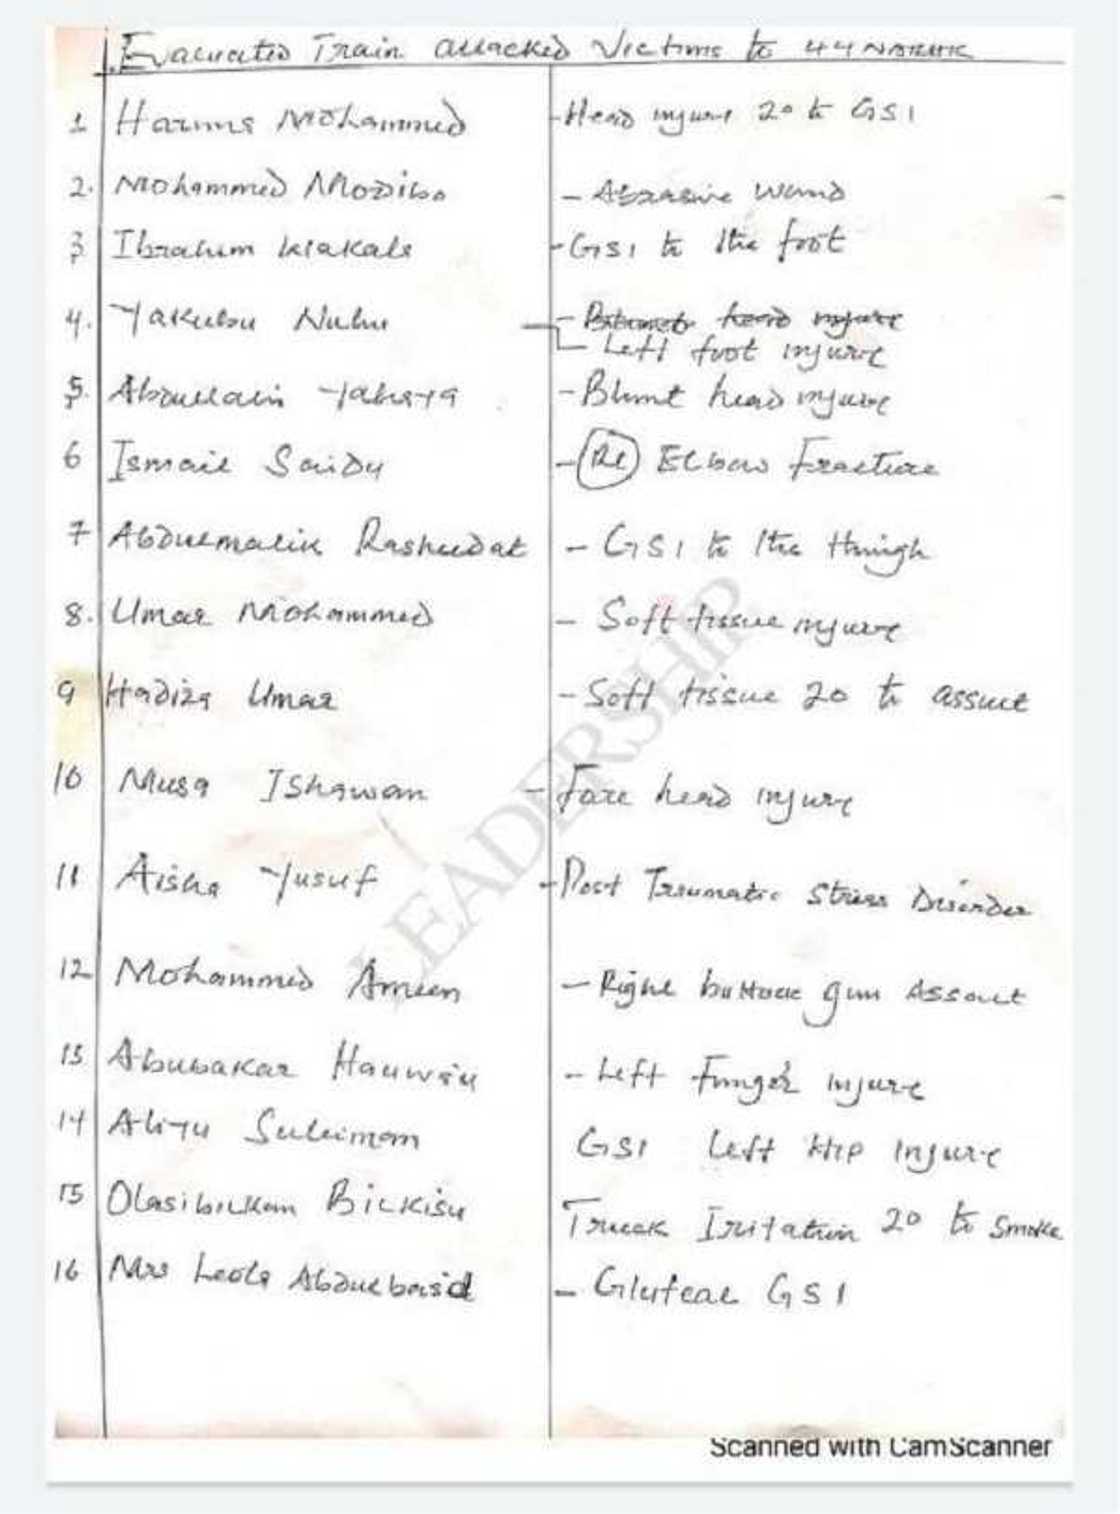 Evacuated Train attacked Victims to 44 NARHK
1 Haruns Mohammed - Head injure 20 to GSI
2. Mohammed Modibo - Abrasive Wund
3 Ibrahim - GSI to the foot
4. Yakubu Nuhu - head injure
- Left foot injure
5. Yahaya - Blunt head injure
6 Ismail Saidu - (Rt) Elbow Fracture
7 Abdulmalik Rasheedat - GSI to the
8. Umar Mohammed - Soft tissue injure
9 Hadiza Umar - Soft tissue 20 to
10 Musa Ishawan - Fore head injure
11 Aisha Yusuf - Post Traumatic Stress Disorder
12 Mohammed Ameen - Right buttock gun
13 Abubakar - Left injure
14 Aliyu Suleiman GSI Left Hip Injure
15 Bilkisu Iritation 20 to Smoke
16 Mrs - Gluteal GSI
LEADERSHIP
Scanned with CamScanner